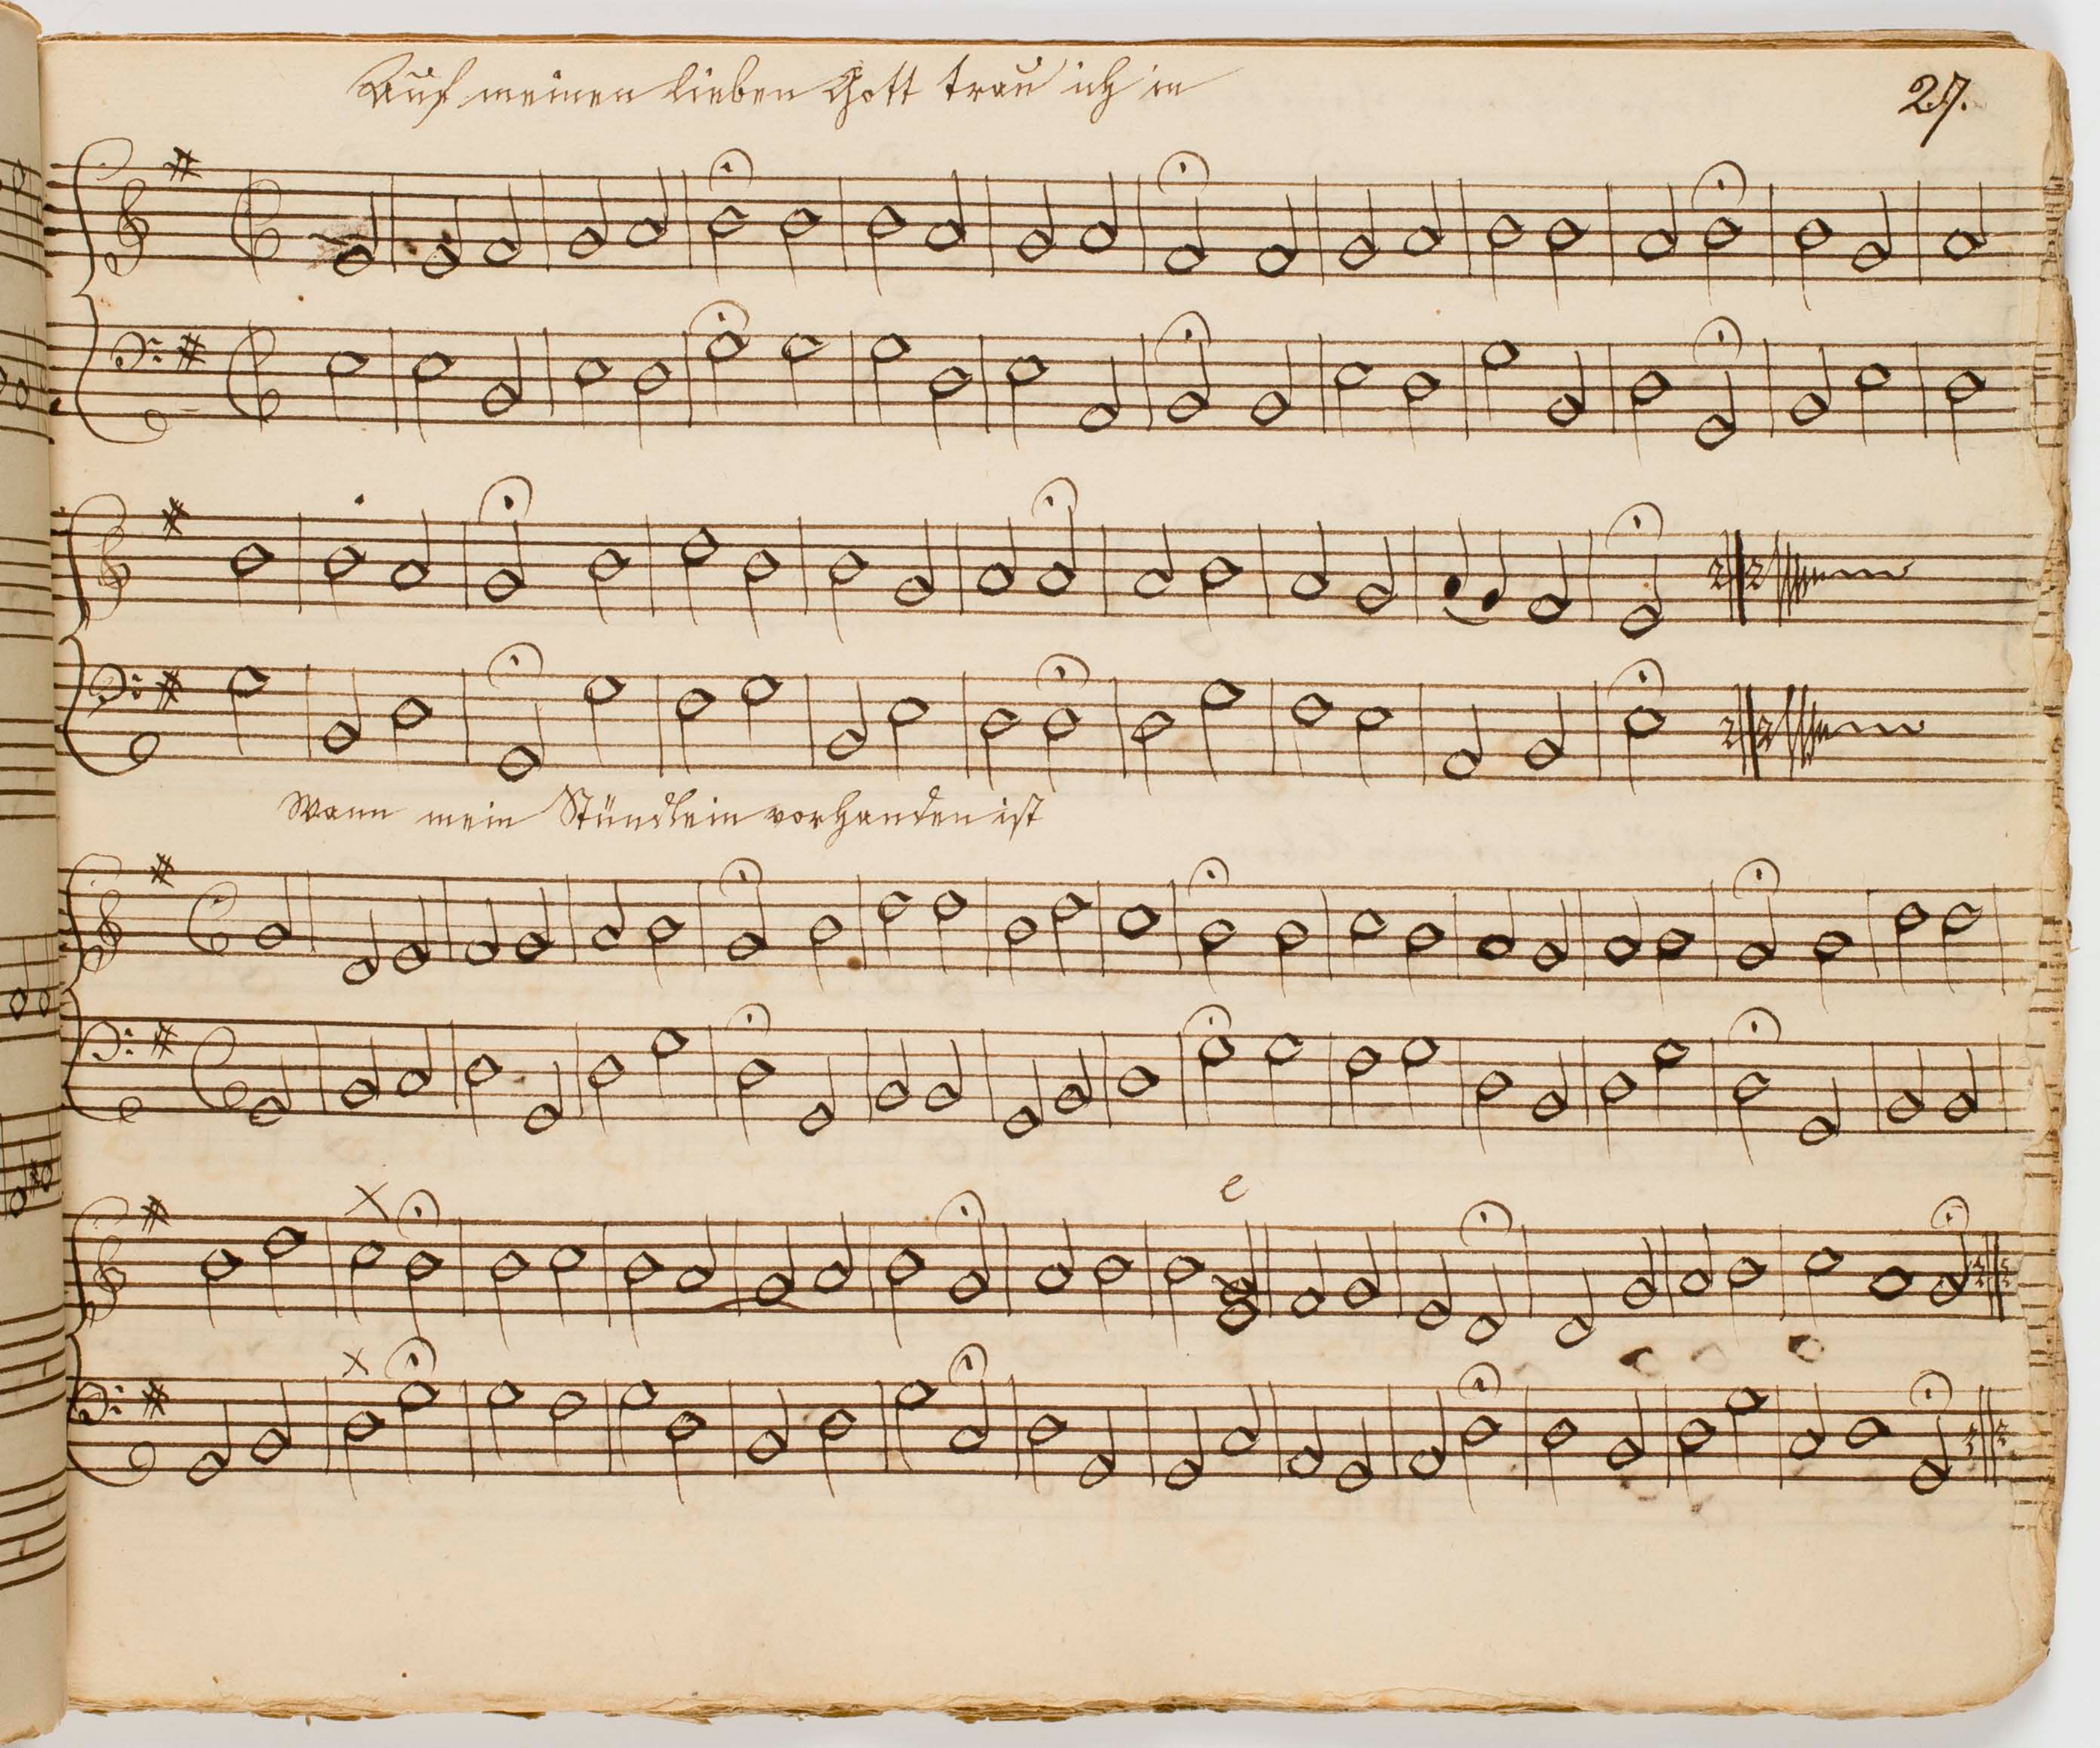 Auf meinen lieben Gott trau ich in
27.
Wann mein Stündlein vorhanden ist
e